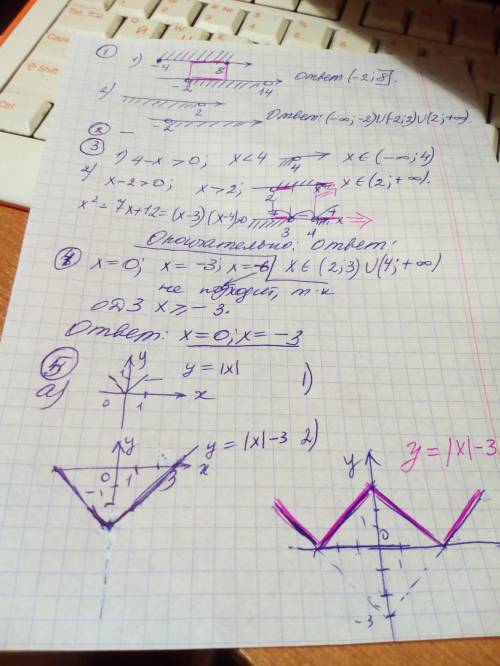 ① 1) -4 8
-2 14 Ответ (-2; 8].
2) 2
-2 Ответ: (-∞; -2)∪(-2; 2)∪(2; +∞).
② —
③ 1) 4-x > 0; x < 4 4 x ∈ (-∞; 4)
2) x-2 > 0; x > 2; 2 x x ∈ (2; +∞).
x² = 7x+12 = (x-3)(x-4) > 0 + 3 4 + x
Окончательно: Ответ:
④ x = 0; x = -3; x = -6 x ∈ (2; 3)∪(4; +∞)
не подходит, т.к
ОДЗ x ≥ -3.
Ответ: x = 0; x = -3
⑤ y y = |x| 1)
а) 1 0 1 x
y y = |x|-3 2)
0 1 3 x
-1
y y = |x|-3
1
0
-3